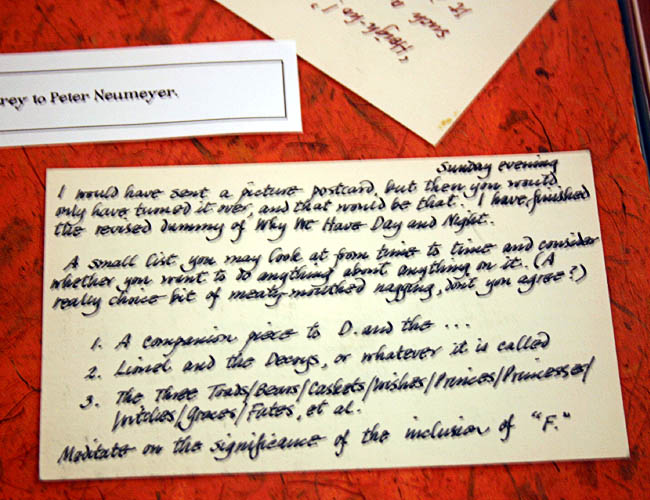 rey to Peter Neumeyer.
Sunday evening
I would have sent a picture postcard, but then you would
only have turned it over, and that would be that. I have finished
the revised dummy of Why We Have Day and Night.
A small list you may look at from time to time and consider
whether you want to do anything about anything on it. (A
really choice bit of meaty-mouthed nagging, don't you agree?)
1. A companion piece to D. and the ...
2. Lionel and the Decoys, or whatever it is called
3. The Three Toads/Bears/Caskets/Wishes/Princes/Princesses/
Witches/Graces/Fates, et al.
Meditate on the significance of the inclusion of "F."